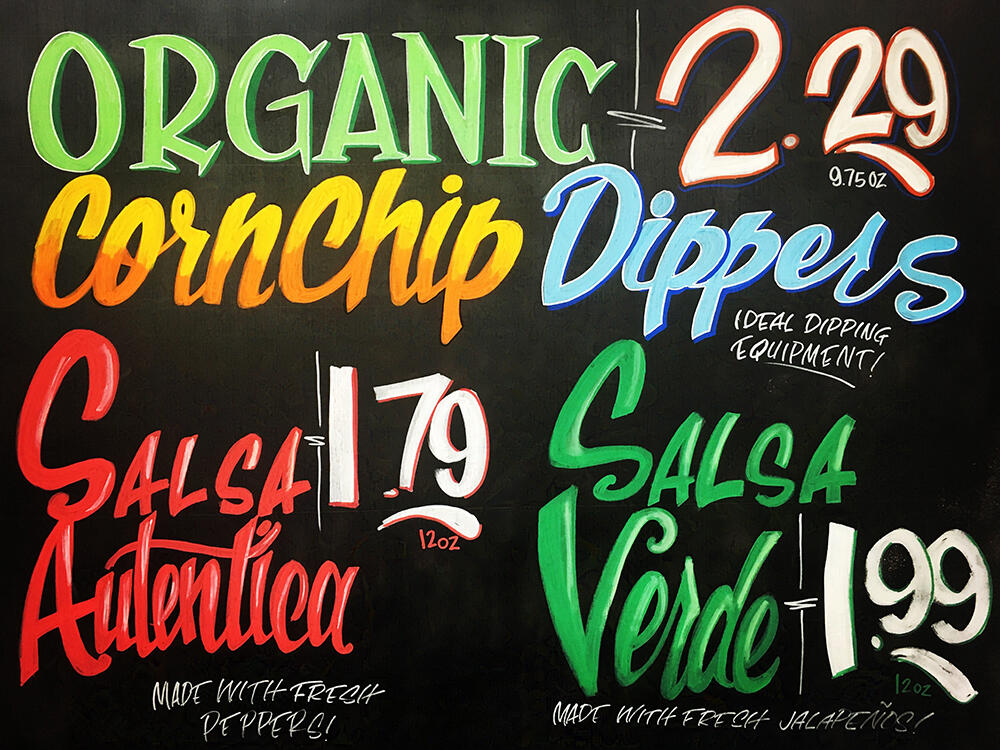 ORGANIC 2.29
9.75 OZ
CornChip Dippers
IDEAL DIPPING
EQUIPMENT!
SALSA 1.79
12 OZ
Autentica
MADE WITH FRESH
PEPPERS!
SALSA
Verde 1.99
12 OZ
MADE WITH FRESH JALAPEÑOS!